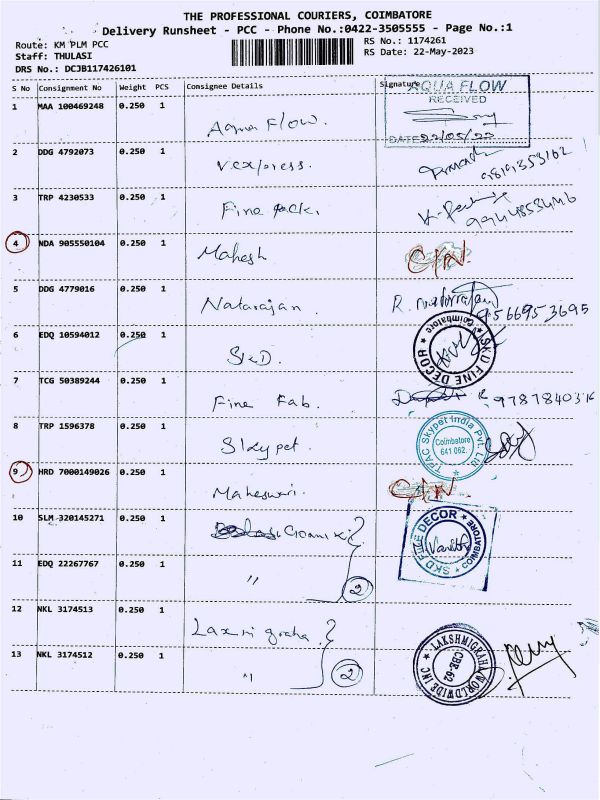 THE PROFESSIONAL COURIERS, COIMBATORE
Delivery Runsheet - PCC - Phone No.:0422-3505555 - Page No.:1
Route: KM PLM PCC
RS No.: 1174261
Staff: THULASI
RS Date: 22-May-2023
DRS No.: DCJB117426101
S No Consignment No Weight PCS Consignee Details Signature
AQUA FLOW
RECEIVED
DATE 22/05/23
1 MAA 100469248 0.250 1 Aqua Flow.
2 DDG 4792073 0.250 1 Vexpress.
3 TRP 4230533 0.250 1 Fine Pack.
4 NDA 905550104 0.250 1 Mahesh
5 DDG 4779016 0.250 1 Natarajan. 9566953695
6 EDQ 10594012 0.250 1 SKD. SKD FINE DECOR Coimbatore
7 TCG 50389244 0.250 1 Fine Fab.
8 TRP 1596378 0.250 1 Skypet. TPAC Skypet India Pvt. Ltd. Coimbatore 641 062.
9 HRD 7000149026 0.250 1 Maheswari.
10 SLM 320145271 0.250 1 SKD FINE DECOR COIMBATORE
11 EDQ 22267767 0.250 1 " 2
12 NKL 3174513 0.250 1 Laxmi graha.
13 NKL 3174512 0.250 1 " 2 LAKSHMIGRAHA WORLDWIDE INC CBE-62